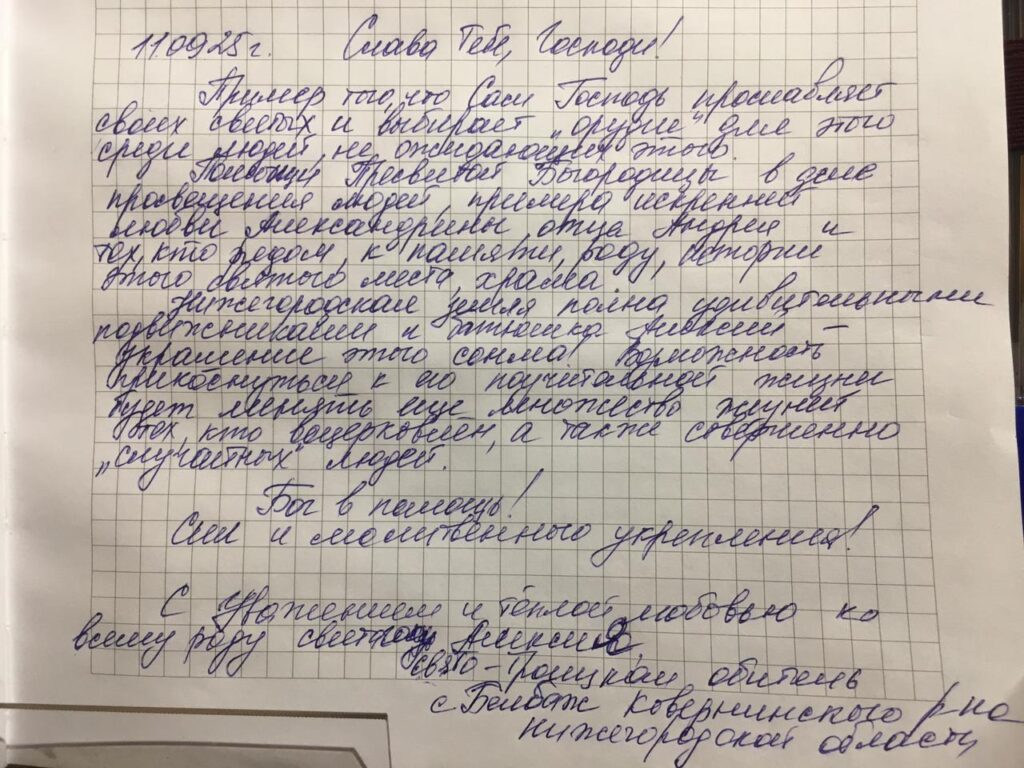 11.09.25 г. Слава Тебе, Господи!
Пример того, что Сам Господь прославляет
своих святых и выбирает „орудие" для этого
среди людей, не ожидающих этого.
Помощи Пресвятой Богородицы в деле
просвещения людей, примера искренней
любви Александрины, отца Андрея и
тех, кто рядом, к памяти, роду, истории
этого святого места, храма.
Нижегородская земля полна удивительными
подвижниками и батюшка Алексий –
украшение этого сонма! Возможность
прикоснуться к его поучительной жизни
будет менять еще множество жизней
тех, кто воцерковлен, а также совершенно
„случайных" людей.
Бог в помощь!
Сил и молитвенного укрепления!
С уважением и тёплой любовью ко
всему роду святого Алексия,
Свято-Троицкая обитель
с. Белбаж Ковернинского р-на
Нижегородской области